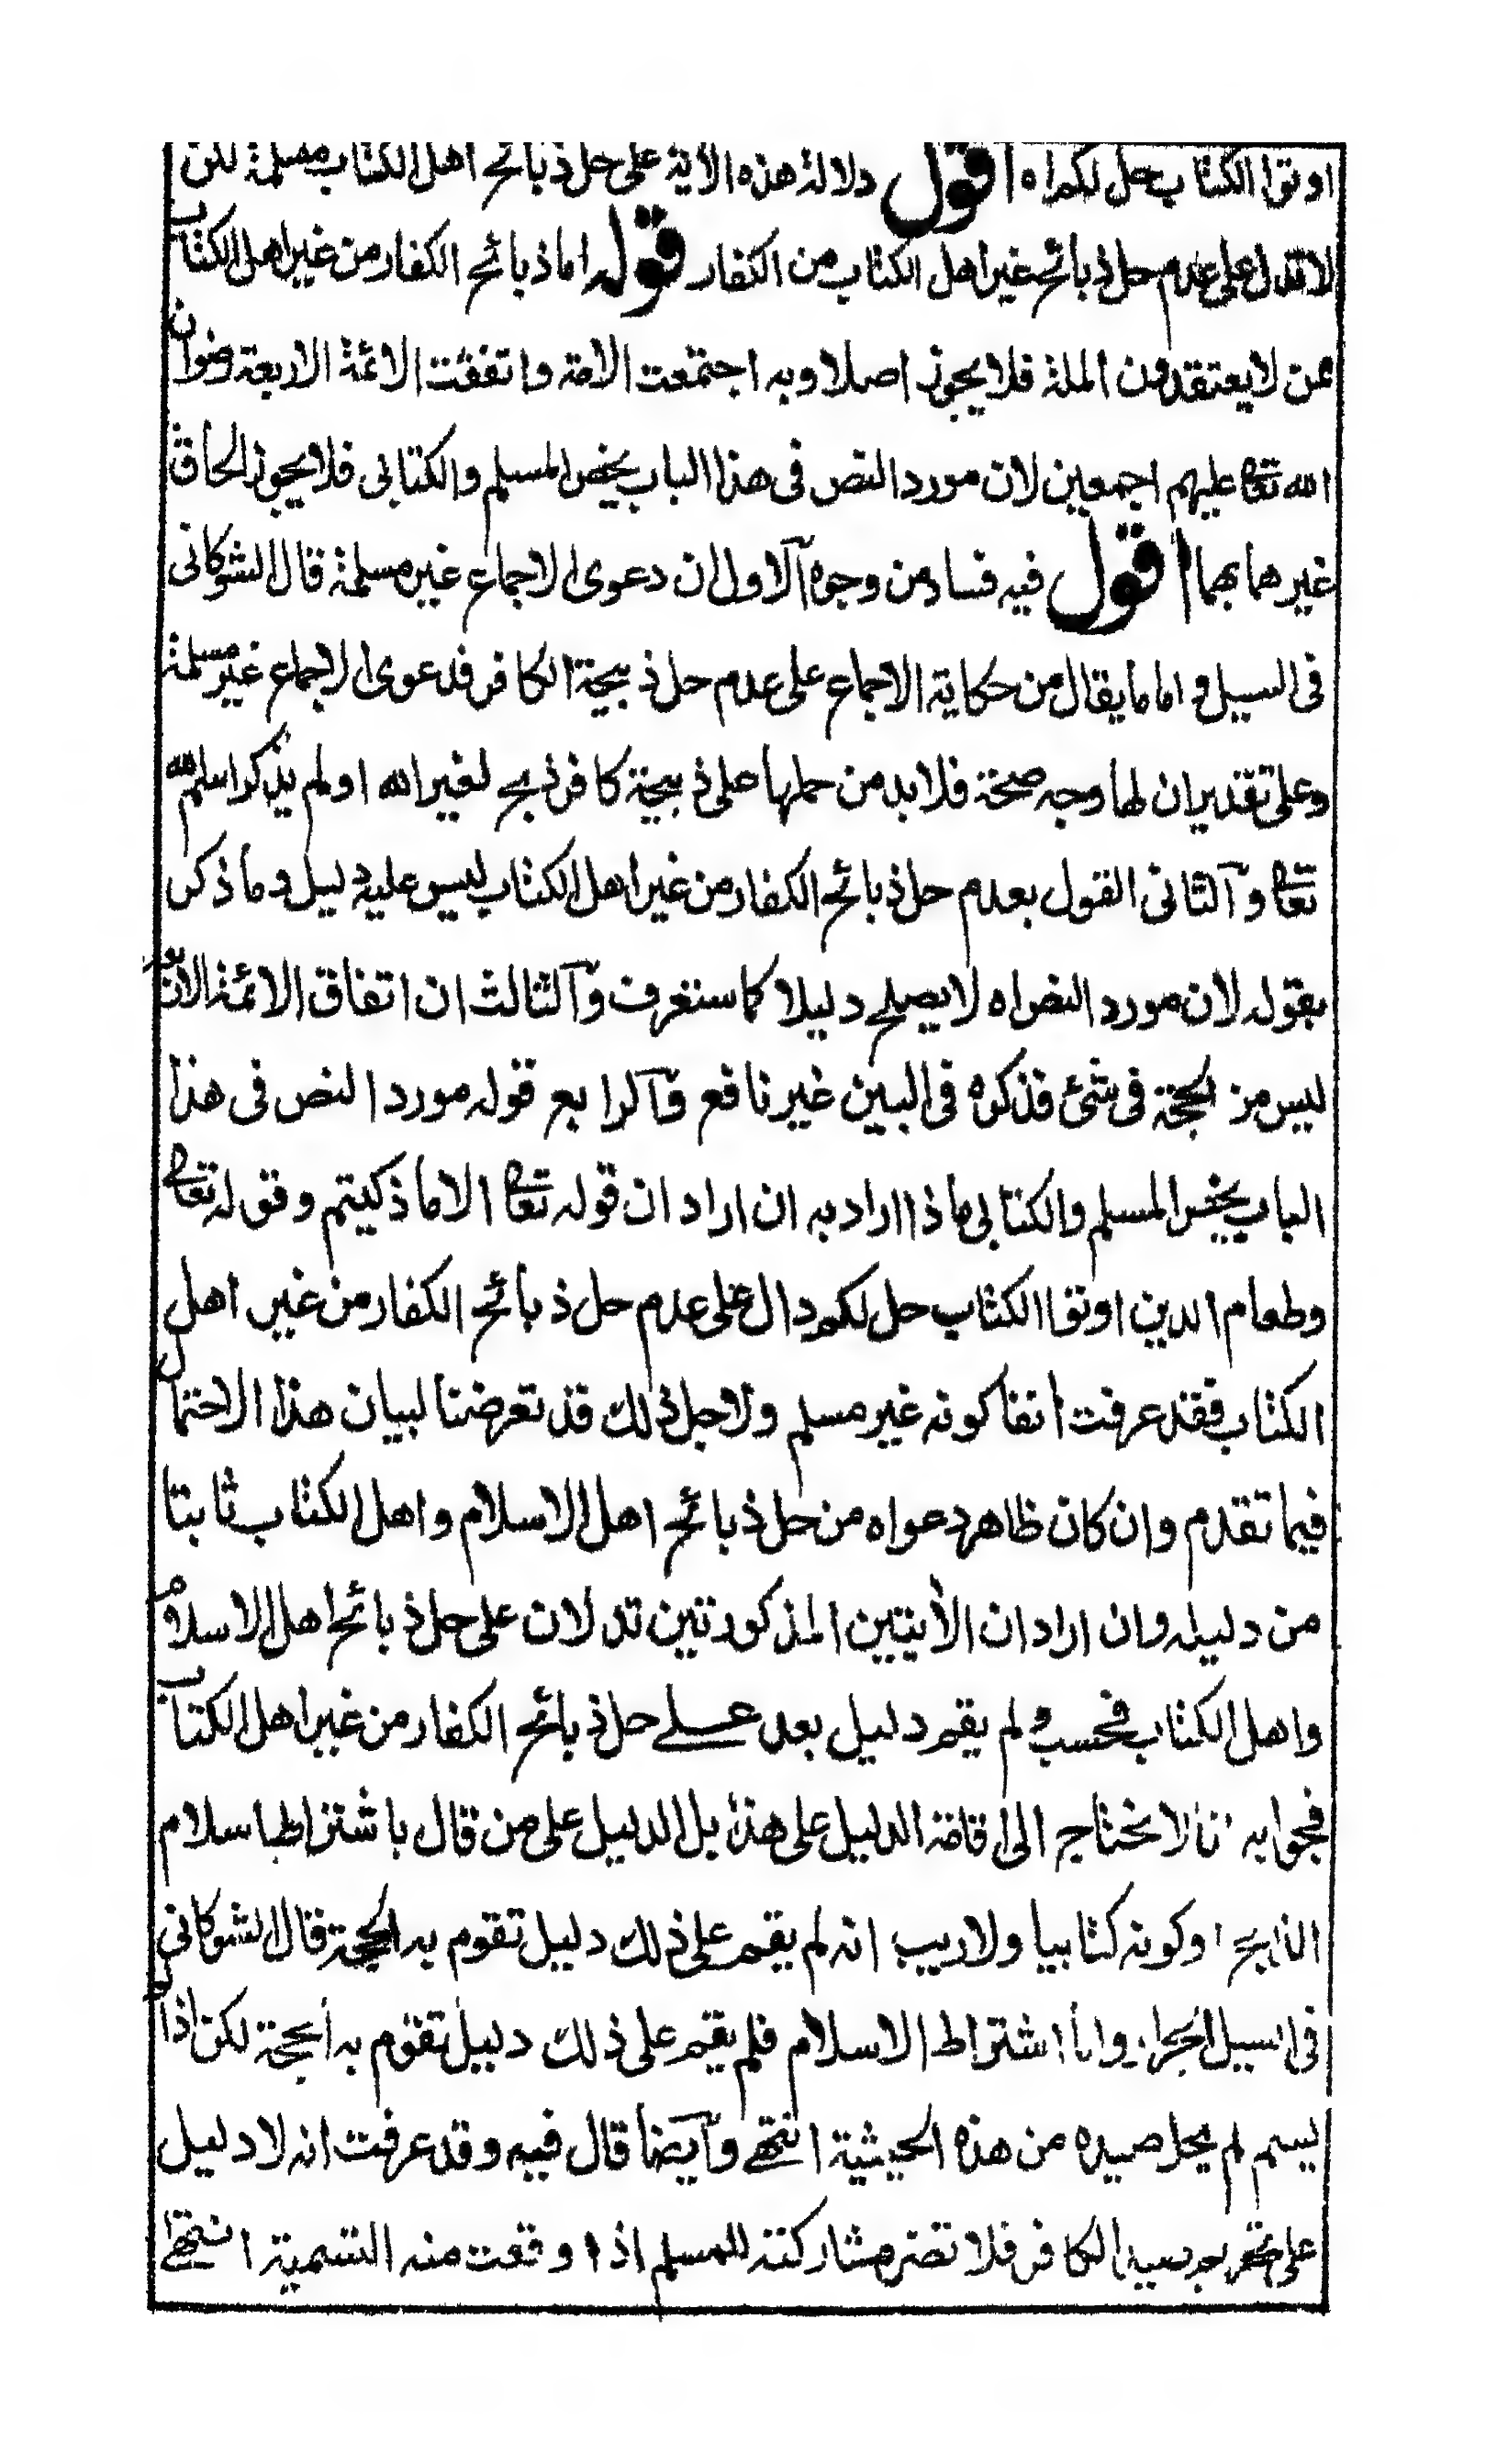 اوتوا الكتاب حل لكم اه اقول دلالة هذه الآية على حل ذبائح اهل الكتاب مسلمة لكن
لا تدل على عدم حل ذبائح غير اهل الكتاب من الكفار قوله اما ذبائح الكفار من غير اهل الكتاب
ممن لا يعتقدون الملة فلا يجوز اصلا وبه اجتمعت الامة واتفقت الائمة الاربعة رضوان
الله تعا عليهم اجمعين لان مورد النص فى هذا الباب يخص المسلم والكتابى فلا يجوز الحاق
غيرهما بهما اقول فيه فساد من وجوه آلاول ان دعوى الاجماع غير مسلمة قال الشوكانى
فى السيل واما ما يقال من حكاية الاجماع على عدم حل ذبيحة الكافر فدعوى الاجماع غير مسلمة
وعلى تقدير ان لها وجه صحة فلا بد من حملها على ذبيحة كافر ذبح لغير الله او لم يذكر اسم الله
تعا وآلثانى القول بعدم حل ذبائح الكفار من غير اهل الكتاب ليس عليه دليل وما ذكر
بقوله لان مورد النص اه لا يصلح دليلا كما ستعرف وآلثالث ان اتفاق الائمة الاربعة
ليس من الحجة فى شئ فذكره فى البين غير نافع وآلرابع قوله مورد النص فى هذا
الباب يخص المسلم والكتابى ماذا اراد به ان اراد ان قوله تعا الا ما ذكيتم وقوله تعا
وطعام الذين اوتوا الكتاب حل لكم دال على عدم حل ذبائح الكفار من غير اهل
الكتاب فقد عرفت انفا كونه غير مسلم ولاجل ذلك قد تعرضنا لبيان هذا الاحتمال
فيما تقدم وان كان ظاهر دعواه من حل ذبائح اهل الاسلام واهل الكتاب ثابتا
من دليله وان اراد ان الأيتين المذكورتين تدلان على حل ذبائح اهل الاسلام
واهل الكتاب فحسب ولم يقم دليل بعد على حل ذبائح الكفار من غير اهل الكتاب
فجوابه انا لا نحتاج الى اقامة الدليل على هذا بل الدليل على من قال باشتراط اسلام
الذابح او كونه كتابيا ولا ريب انه لم يقم على ذلك دليل تقوم به الحجة قال الشوكانى
فى السيل الجرار واما اشتراط الاسلام فلم يقم على ذلك دليل تقوم به الحجة لكن اذا لم
يسم لم يحل صيده من هذه الحيثية انتهى وآيضا قال فيه وقد عرفت انه لا دليل
على تحريم صيد الكافر فلا تضر مشاركته للمسلم اذا وقعت منه التسمية انتهى